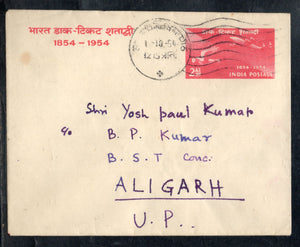 भारत डाक-टिकट शताब्दी
1854 - 1954
डाक-टिकट शताब्दी
1854-1954
2½
INDIA POSTAGE
Shri Yosh paul Kumar
c/o B. P. Kumar
B. S. T Conc.
ALIGARH
U. P..